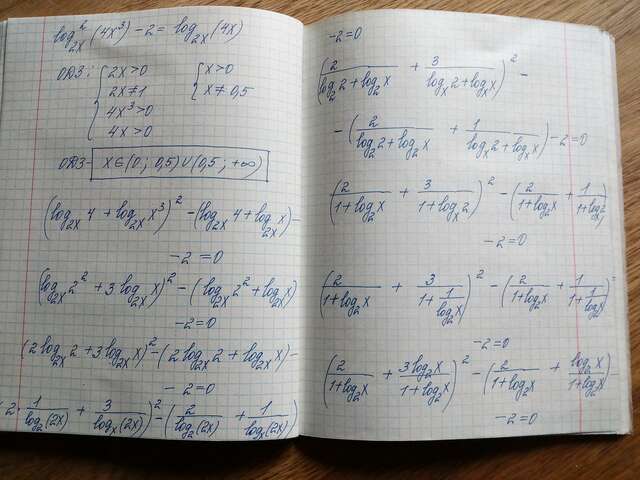 log²₂ₓ(4x³) - 2 = log₂ₓ(4x)
ОДЗ: { 2x>0 { x>0
2x≠1 x≠0,5
4x³>0
4x>0
ОДЗ- x∈(0; 0,5)∪(0,5; +∞)
(log₂ₓ4 + log₂ₓx³)² - (log₂ₓ4 + log₂ₓx) -
-2=0
(log₂ₓ2² + 3log₂ₓx)² - (log₂ₓ2² + log₂ₓx)
-2=0
(2log₂ₓ2 + 3log₂ₓx)² - (2log₂ₓ2 + log₂ₓx) -
-2=0
2·1/log₂(2x) + 3/logₓ(2x))² - (2/log₂(2x) + 1/logₓ(2x))
-2=0
(2/(log₂2+log₂x) + 3/(logₓ2+logₓx))² -
-(2/(log₂2+log₂x) + 1/(logₓ2+logₓx)) -2=0
(2/(1+log₂x) + 3/(1+logₓ2))² - (2/(1+log₂x) + 1/(1+logₓ2))
-2=0
(2/(1+log₂x) + 3/(1+1/log₂x))² - (2/(1+log₂x) + 1/(1+1/log₂x)) -
-2=0
(2/(1+log₂x) + 3log₂x/(1+log₂x))² - (2/(1+log₂x) + log₂x/(1+log₂x)) -
-2=0